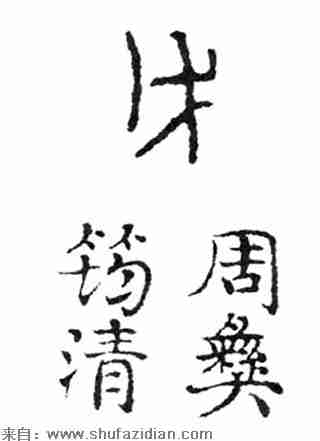 周彝
筠清
来自：www.shufazidian.com